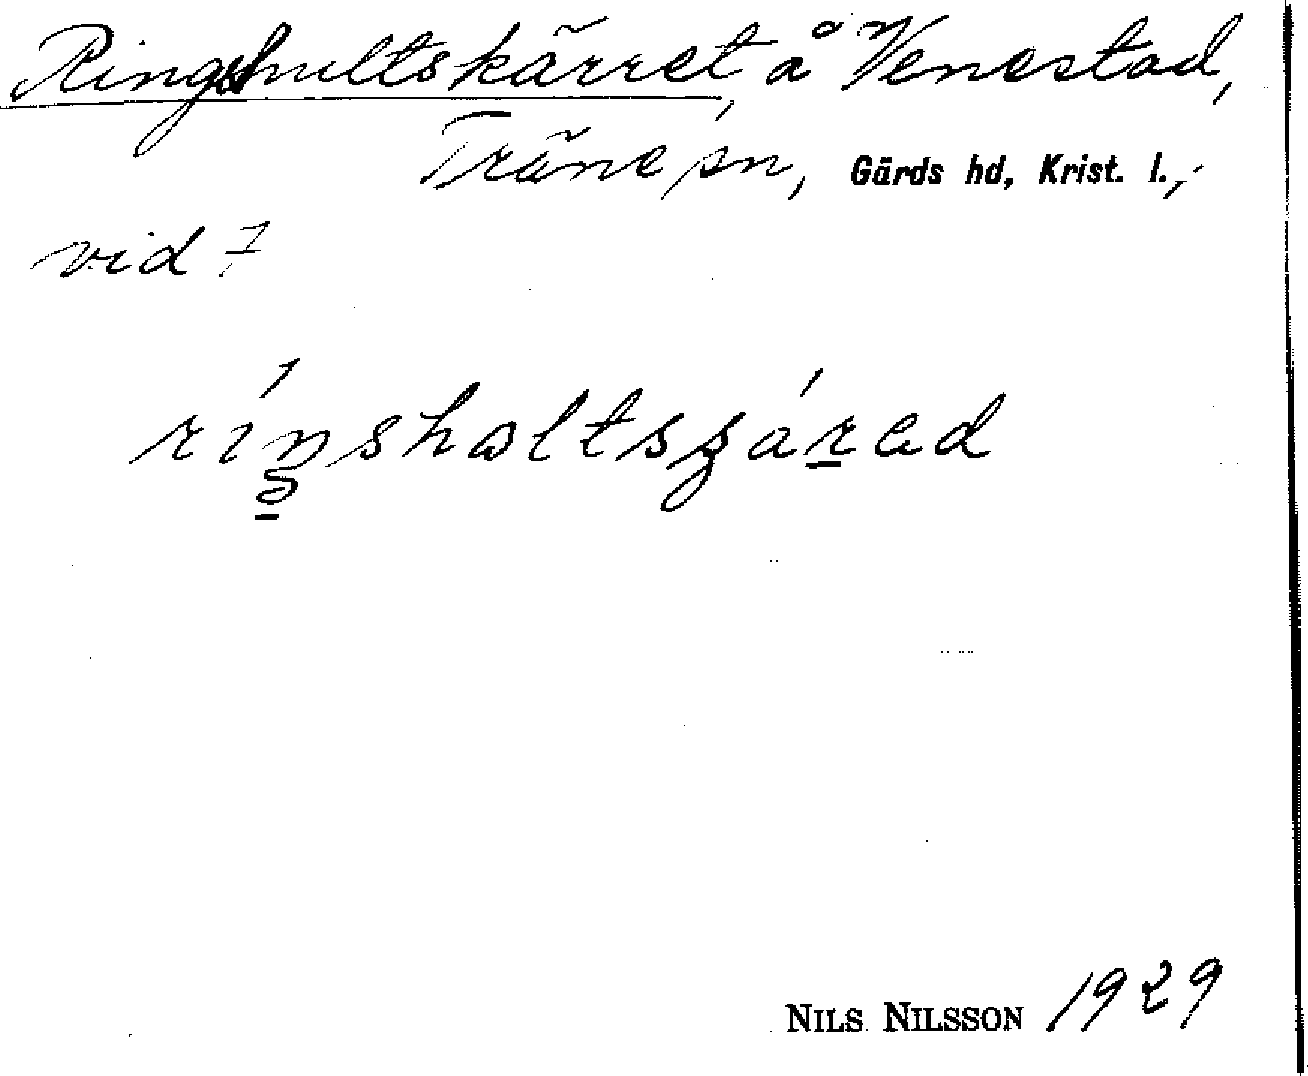 Ringshultskärret, å Venestad,
Träne sn, Gärds hd, Krist. l.,
vid 7
ríŋshɷltsʂáred
NILS NILSSON 1929